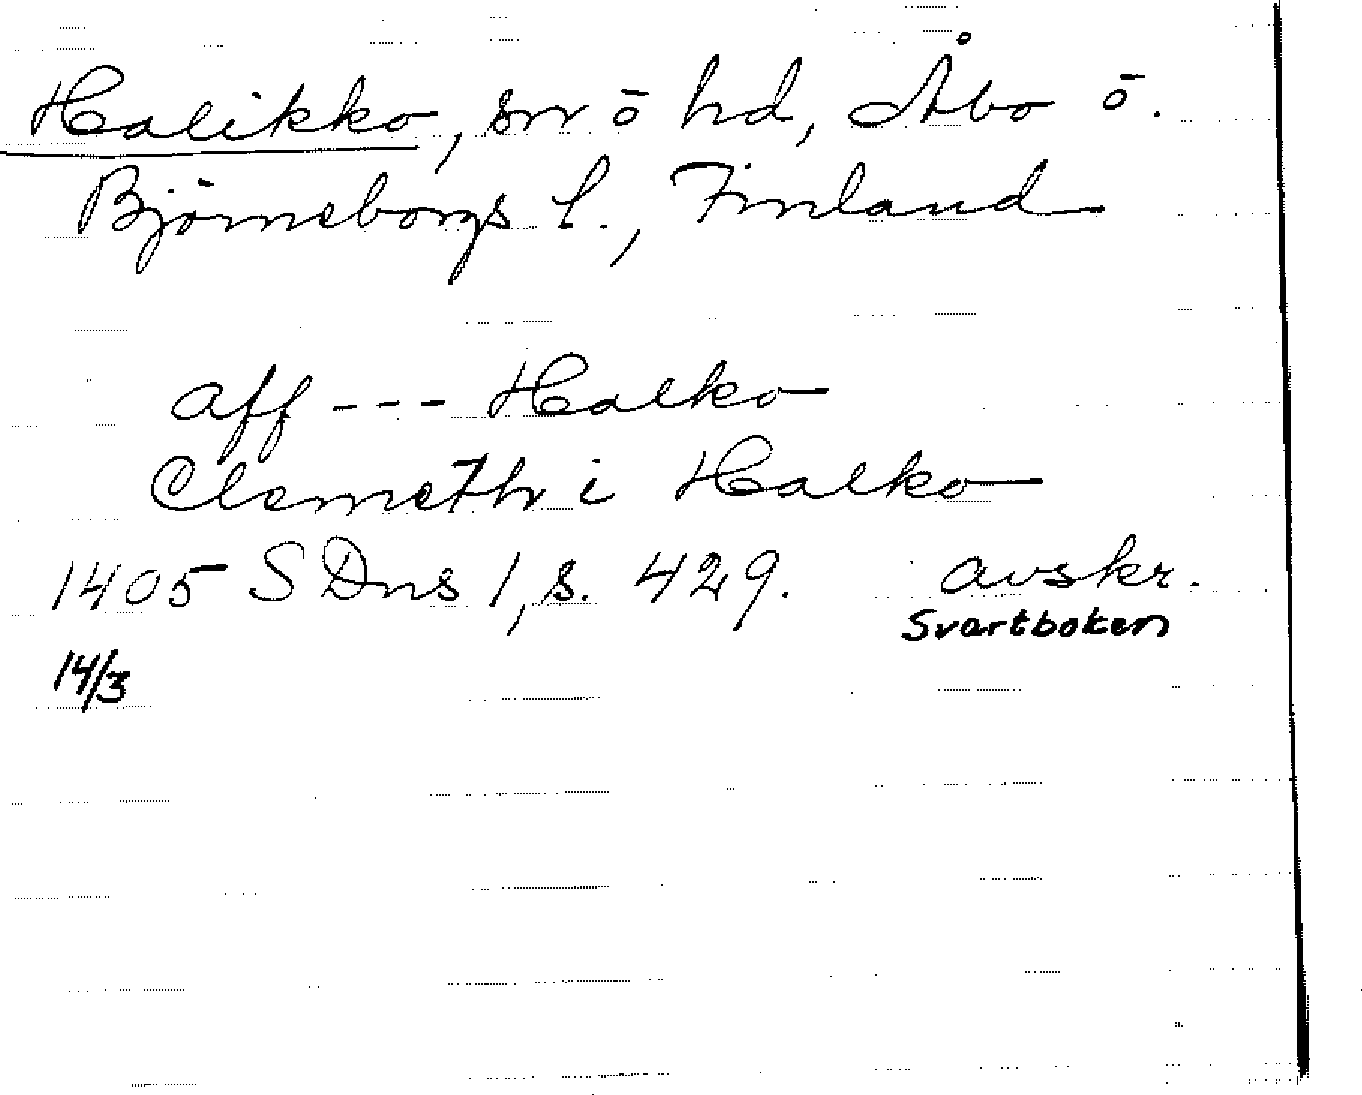 Halikko, sn ō hd, Åbo ō.
Björneborgs l., Finland
aff --- Halko
Clemeth i Halko
1405 SDns 1, s. 429. avskr.
Svartboken
14/3